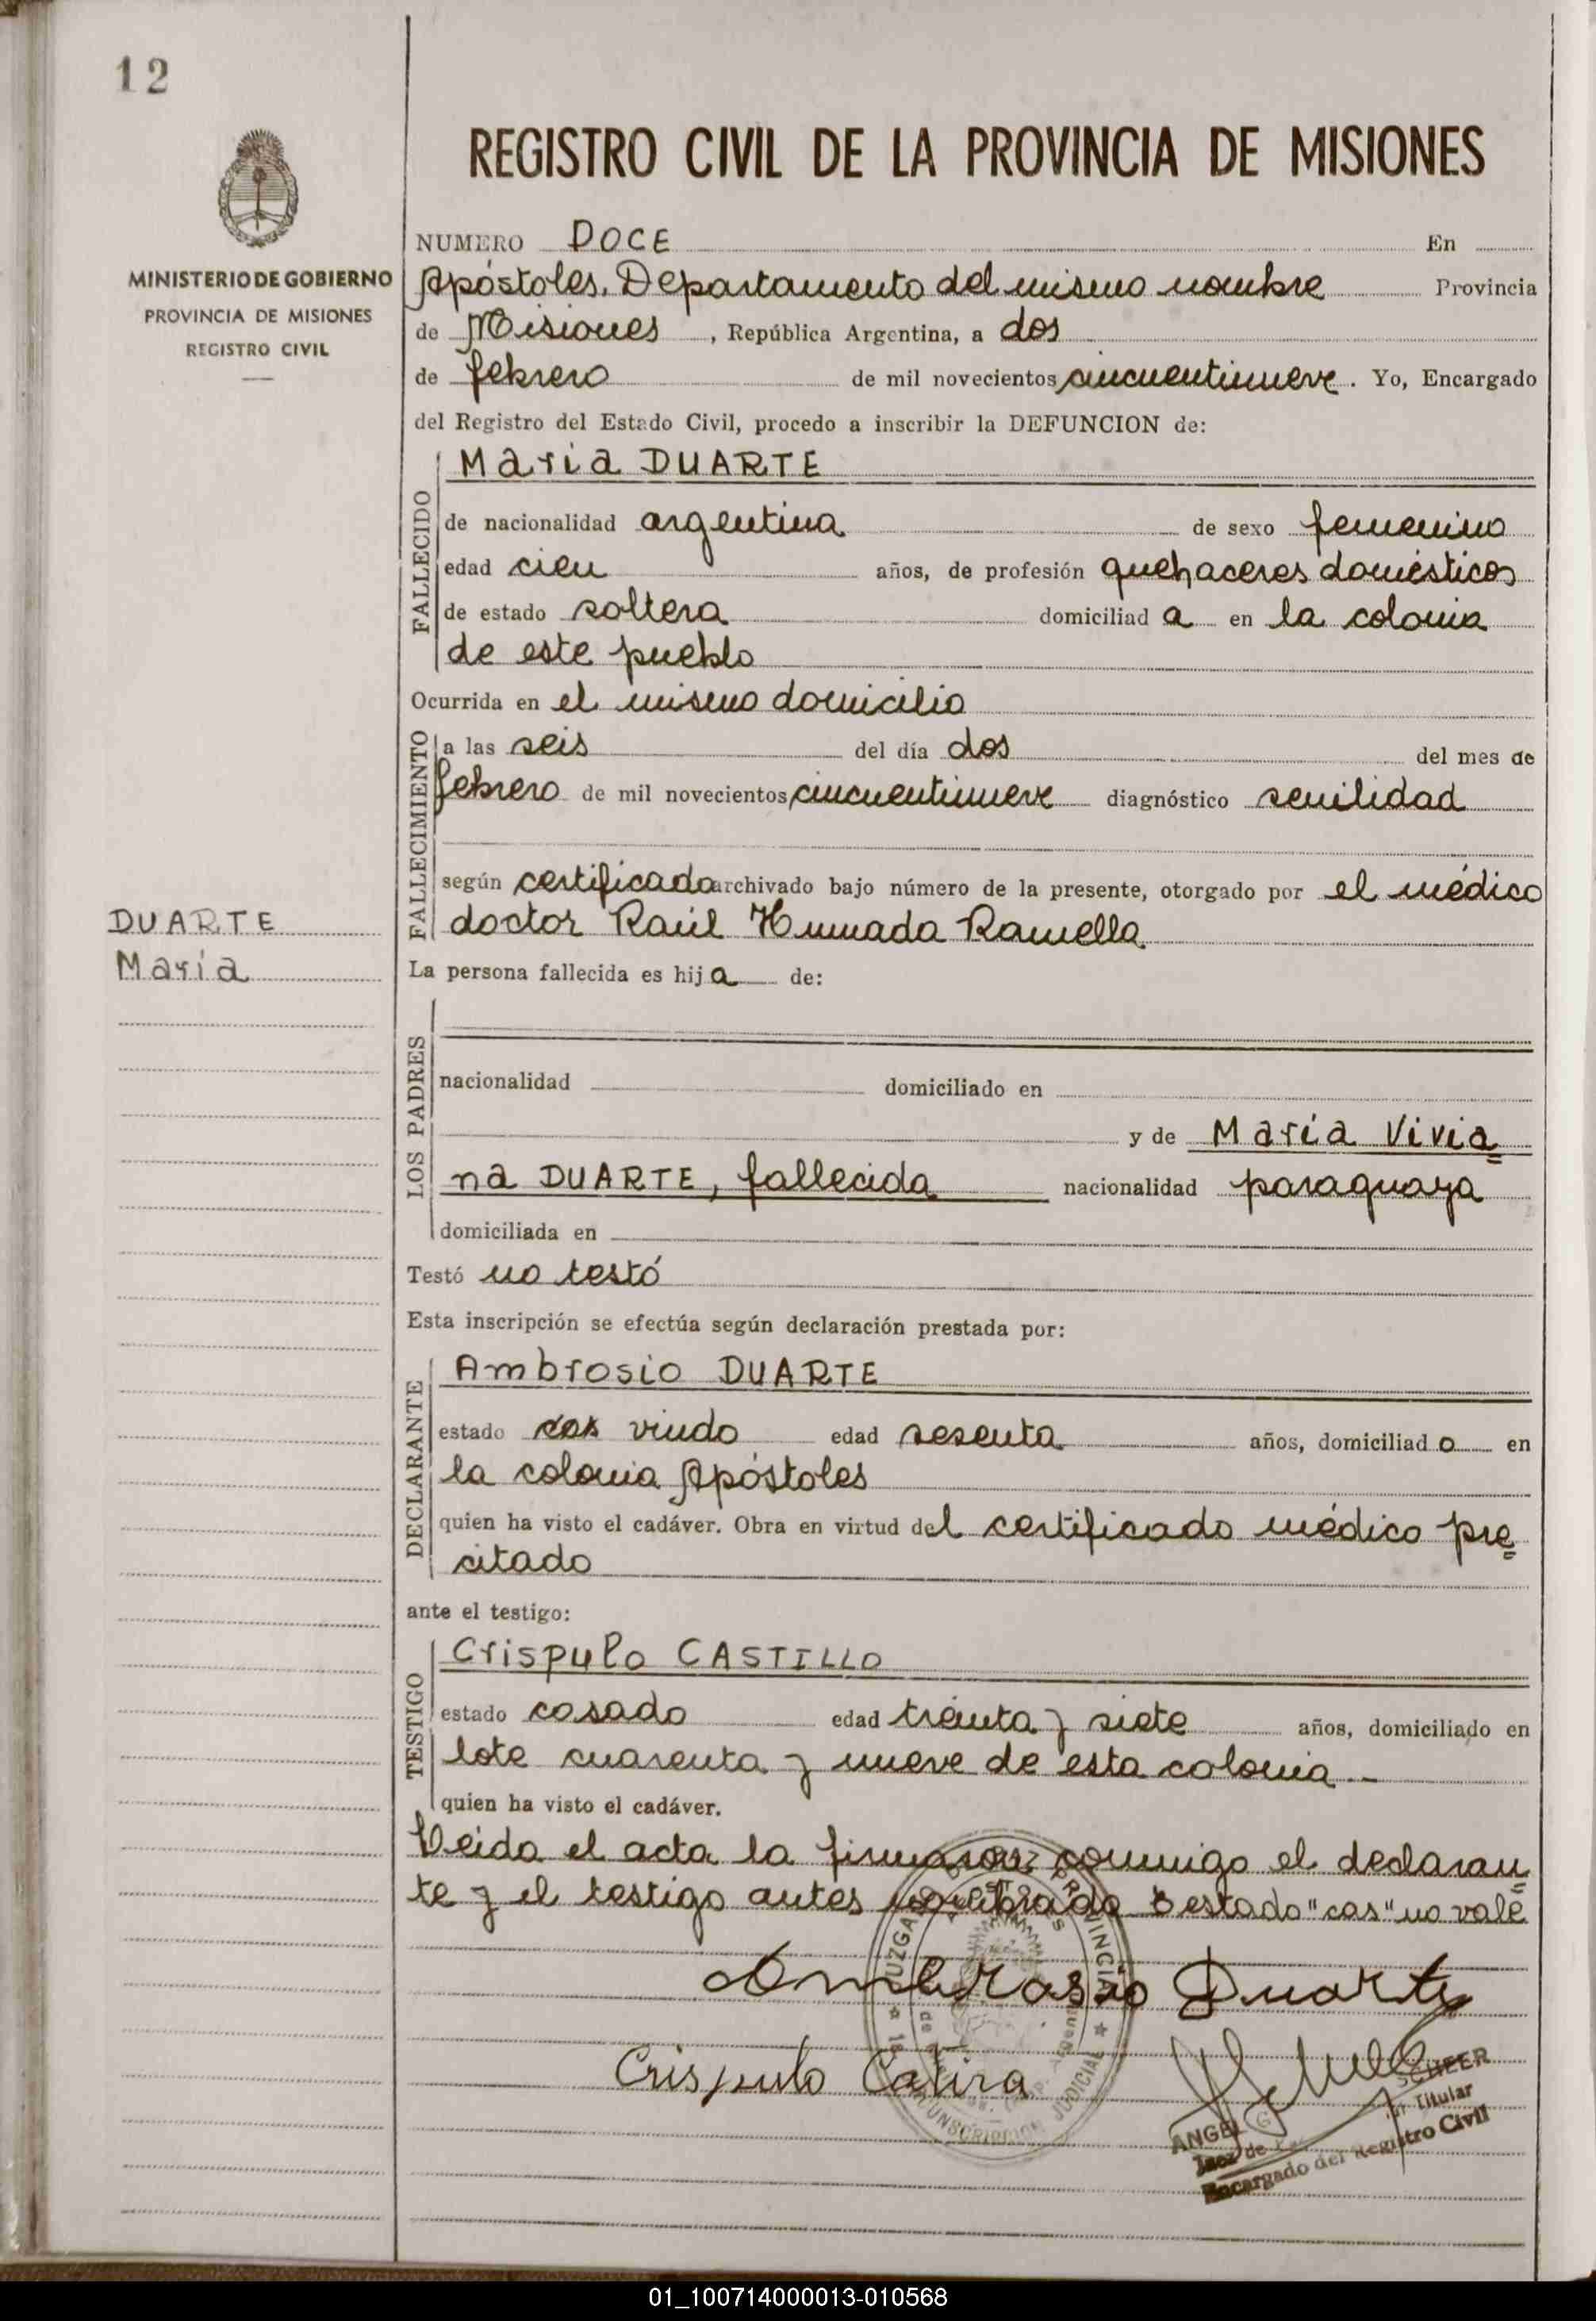 12
MINISTERIO DE GOBIERNO
PROVINCIA DE MISIONES
REGISTRO CIVIL
REGISTRO CIVIL DE LA PROVINCIA DE MISIONES
NUMERO DOCE En
Apóstoles. Departamento del mismo nombre Provincia
de Misiones, República Argentina, a dos
de febrero de mil novecientos cincuentinueve. Yo, Encargado
del Registro del Estado Civil, procedo a inscribir la DEFUNCION de:
FALLECIDO
Maria DUARTE
de nacionalidad argentina de sexo femenino
edad cien años, de profesión quehaceres domésticos
de estado soltera domiciliad a en la colonia
de este pueblo
Ocurrida en el mismo domicilio
FALLECIMIENTO
a las seis del día dos del mes de
febrero de mil novecientos cincuentinueve diagnóstico senilidad
según certificado archivado bajo número de la presente, otorgado por el médico
doctor Raúl Humada Ramella
DUARTE
María
La persona fallecida es hij a de:
LOS PADRES
nacionalidad domiciliado en
y de María Vivia=
na DUARTE, fallecida nacionalidad paraguaya
domiciliada en
Testó no testó
Esta inscripción se efectúa según declaración prestada por:
DECLARANTE
Ambrosio DUARTE
estado cas viudo edad sesenta años, domiciliad o en
la colonia Apóstoles
quien ha visto el cadáver. Obra en virtud del certificado médico pre=
citado
ante el testigo:
TESTIGO
Crispulo CASTILLO
estado casado edad treinta y siete años, domiciliado en
lote cuarenta y nueve de esta colonia.-
quien ha visto el cadáver.
Leida el acta la firmaron conmigo el declaran=
te y el testigo antes nombrado estado "cas" no vale
Ambrosio Duarte
Crispulo
JUZGA PROVINCIA
CUNSCRIPCION JUDICIAL
ANGEL G. SCHEER
Juez de Titular
Encargado del Registro Civil
01_100714000013-010568